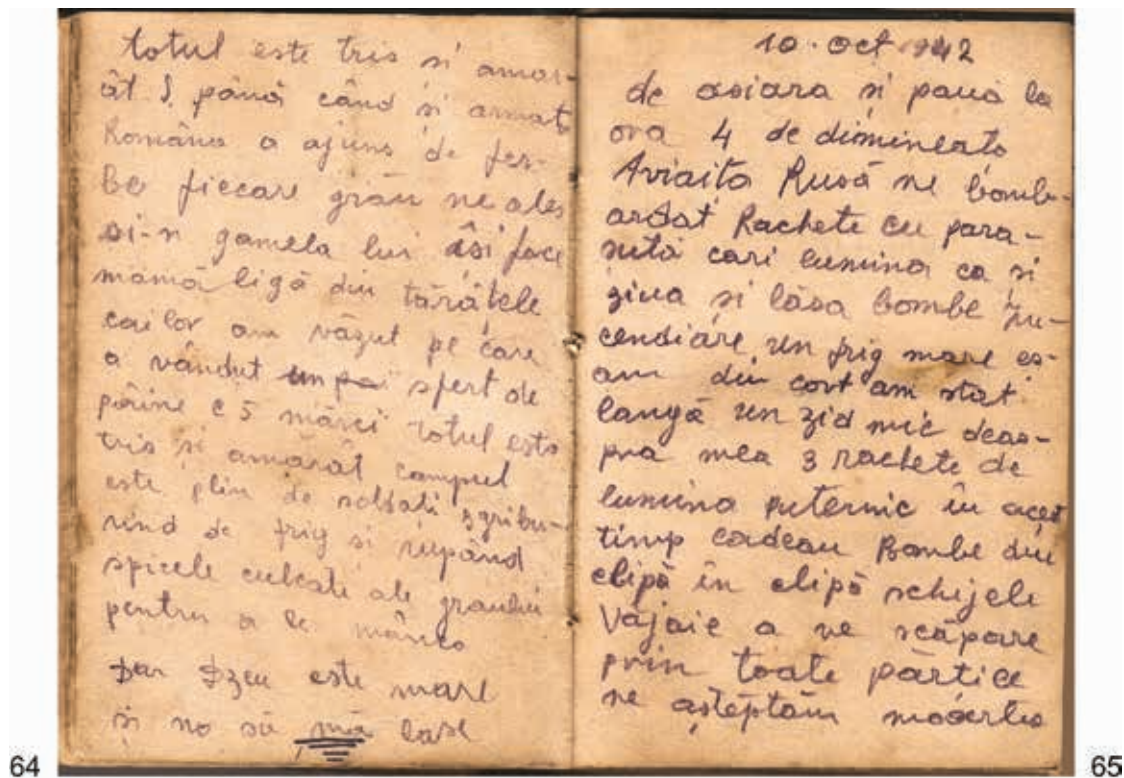 totul este tris si amar-
ât S până când si armata
Româna a ajuns de fer-
be fiecare grâu ne ales
si-n gamela lui âsi face
mămăligă din tărâtele
cailor am văzut pe care
a vândut un pai sfert de
pâine c 5 mărci totul este
tris si amărât campul
este plin de soldati zgribu-
rind de frig si rupând
spicele culcate ale graului
pentru a le mânca
Dar Dzeu este mare
si no să mă lase
64
10. oct 1942
de asiara si pana la
ora 4 de dimineata
Aviaita Rusă ne bomb-
ardat Rachete cu para-
sută cari lumina ca si
ziua si lăsa bombe în-
cendiare, un frig mare es-
am din cort am stat
langă un zid mic deas-
pra mea 3 rachete de
lumina puternic în acest
timp cadeau Bombe din
clipă în clipă schijele
Vajaie a ne scăpare
prin toate părtice
ne așteptăm moartea
65